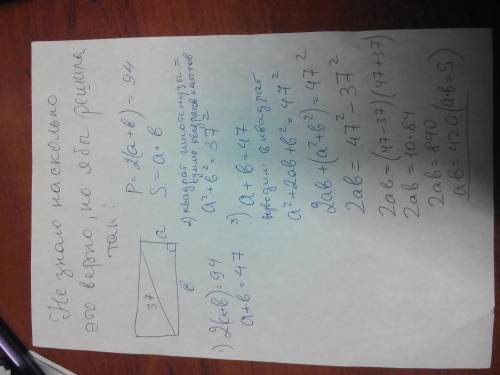 Не знаю насколько
это верно, но я бы решила
так:
37
a
в
P = 2(a+в) = 94
S = a • в
1) 2(a+в)=94
a+в = 47
2) квадрат гипотенузы =
сумме квадратов катетов
a²+в² = 37²
3) a+в = 47
возводим в квадрат
a²+2aв+в² = 47²
2aв+(a²+в²) = 47²
2aв = 47² - 37²
2aв = (47-37)(47+37)
2aв = 10·84
2aв = 840
aв = 420 (aв=S)